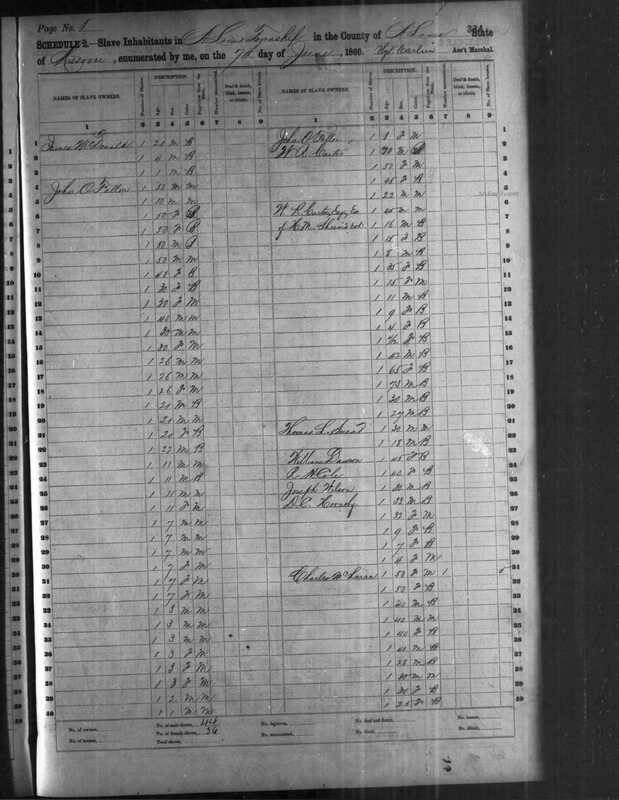 Page No. 1
SCHEDULE 2.—Slave Inhabitants in St Louis Township in the County of St Louis State
of Missouri, enumerated by me, on the 7th day of June, 1860. Ass't Marshal.
NAMES OF SLAVE OWNERS. Number of Slaves. DESCRIPTION. Age. Sex. Color. Fugitives from the State. Number manumitted. Deaf & dumb, blind, insane, or idiotic. No. of Slave houses.
NAMES OF SLAVE OWNERS. Number of Slaves. DESCRIPTION. Age. Sex. Color. Fugitives from the State. Number manumitted. Deaf & dumb, blind, insane, or idiotic. No. of Slave houses.
1 2 3 4 5 6 7 8 9 1 2 3 4 5 6 7 8 9
1 James McDonald 1 20 M B
2 1 4 M B
3 1 1 M B
4 John O'Fallon 1 52 M M
5 1 50 M M
6 1 50 F B
7 1 50 F B
8 1 50 M
9 1 50 M M
10 1 45 F B
11 1 30 F B
12 1 30 F M
13 1 40 M M
14 1 30 M M
15 1 30 F M
16 1 26 M M
17 1 26 M M
18 1 26 F M
19 1 20 M B
20 1 20 M M
21 1 20 F B
22 1 22 M B
23 1 11 M M
24 1 11 M B
25 1 11 M M
26 1 11 F M
27 1 7 M M
28 1 7 M M
29 1 7 M M
30 1 7 F M
31 1 7 F M
32 1 7 F M
33 1 3 M M
34 1 3 M M
35 1 3 M M
36 1 3 F M
37 1 3 F M
38 1 3 F M
39 1 2 M M
40 1 1 M M
John O'Fallon 1 8 F M
W. A. Carter 1 30 M B
1 50 F M
1 45 F B
1 22 M M
W R Curtis Exr 1 45 M M
of H. M. 1 16 M B
1 15 F B
1 8 M B
1 35 F B
1 15 F M
1 11 M B
1 9 F B
1 4 F B
1 F B
1 42 M B
1 65 F B
1 75 M B
1 30 M B
1 27 M B
Thomas L. 1 30 M M
1 18 M B
William Dawson 1 45 F B
Cole 1 40 F B
Joseph Wilson 1 20 M B
D. C. Hornsby 1 33 M B
1 32 F M
1 9 F B
1 7 F B
1 4 F M
Charles McLaran 1 50 F M 1
1 50 F B
1 40 M B
1 40 M M
1 40 F B
1 40 M B
1 35 M B
1 30 M M
1 30 F B
1 25 F B
No. of owners, No. of male slaves, 44 No. fugitives, No. deaf and dumb, No. insane,
No. of houses, No. of female slaves, 36 No. manumitted, No. blind, No. idiotic,
Total slaves,